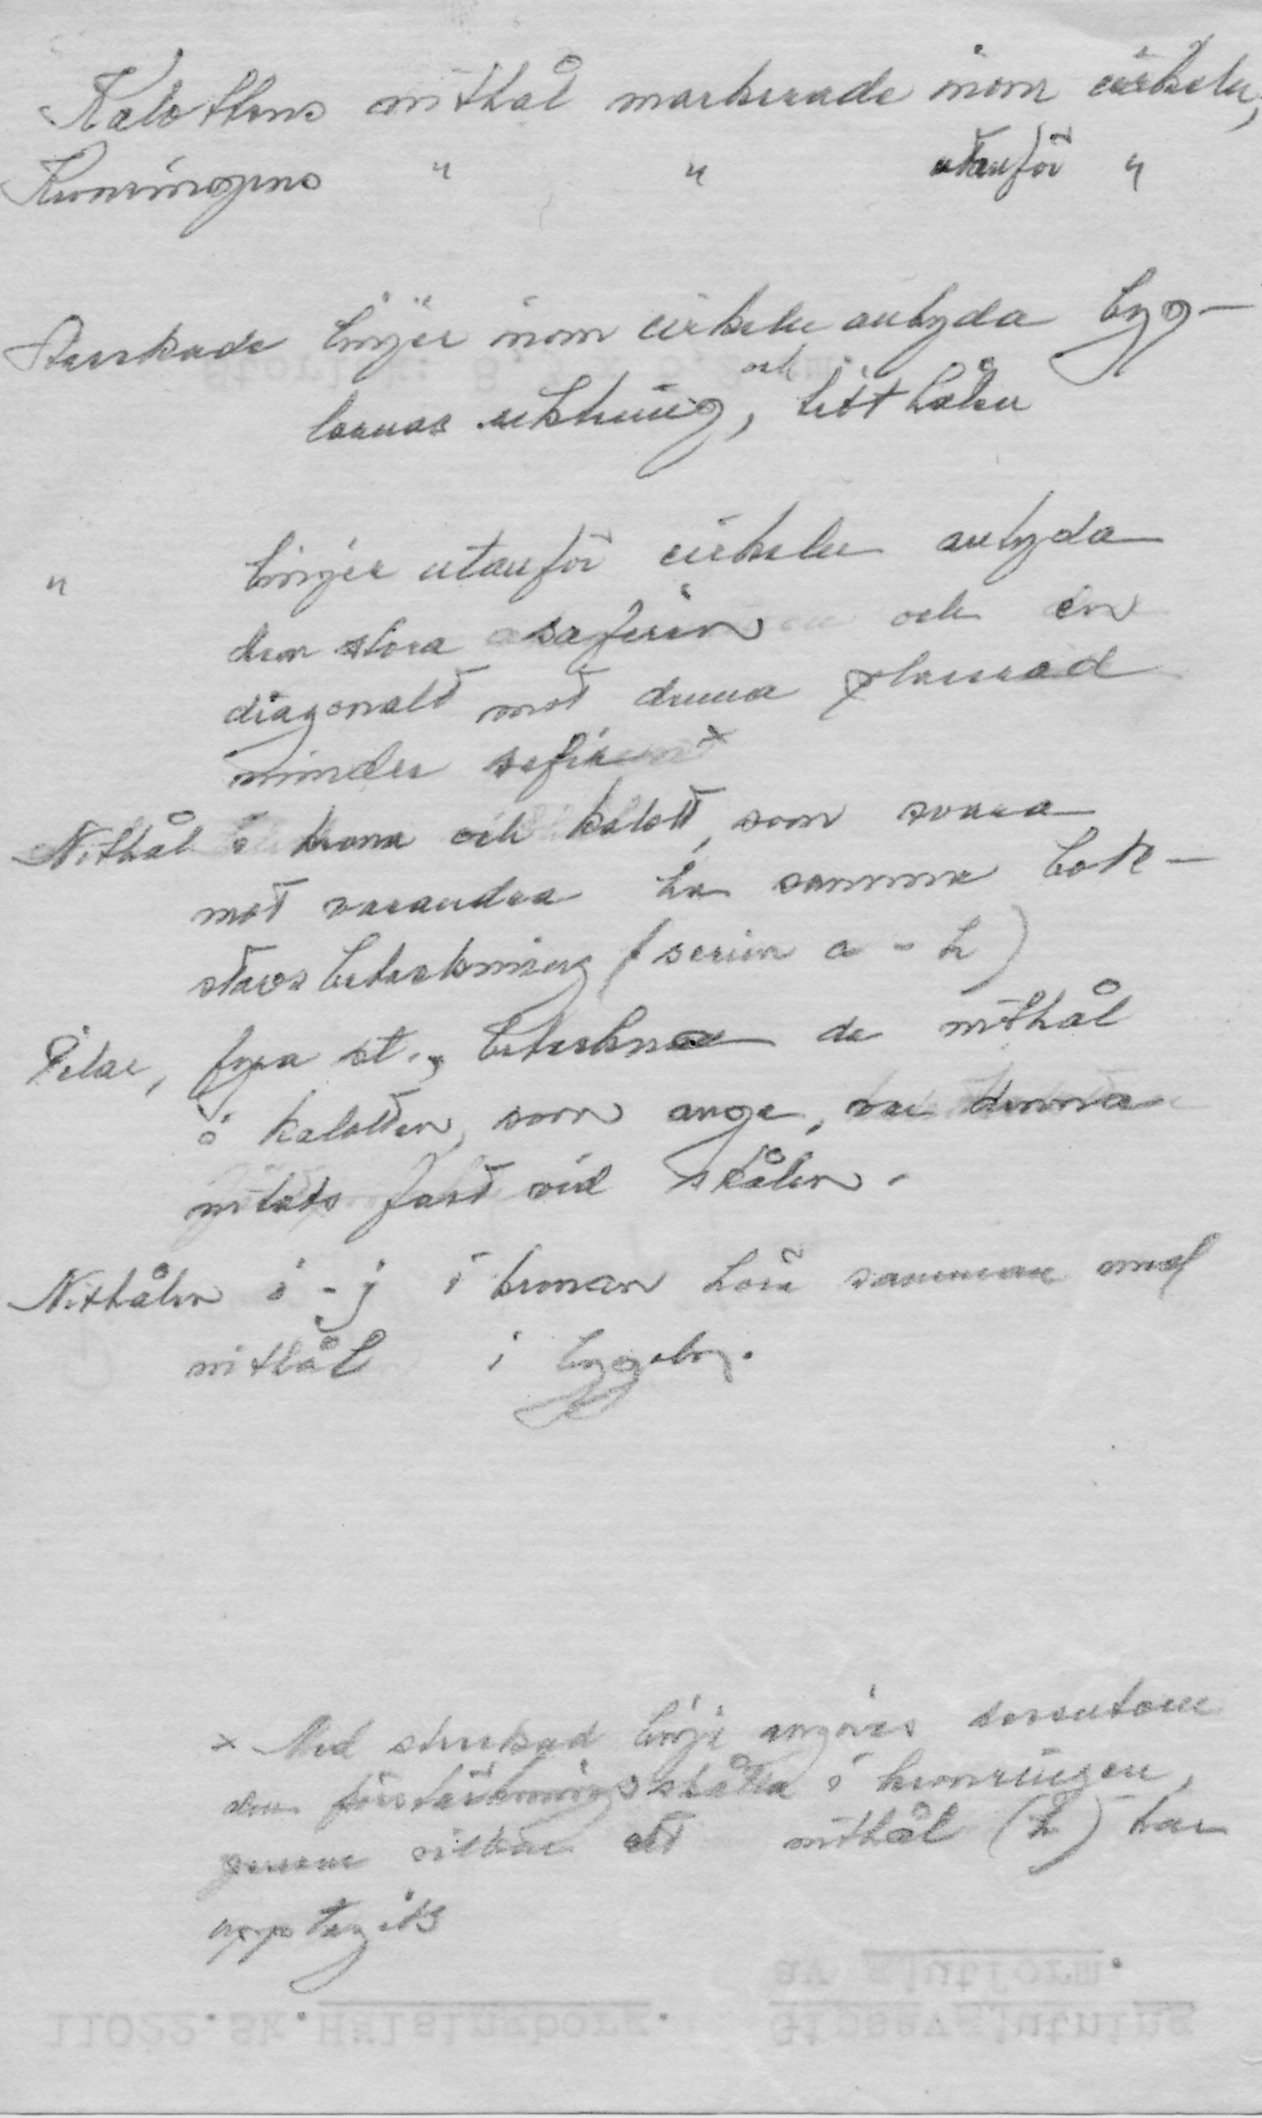 Kalottens nithål markerade inom cirkeln,
Kronringens " " utanför "
Streckade linjer inom cirkeln antyda byg-
larnas riktning, och lödhålen
" linjer utanför cirkeln antyda
den stora safiren och en
diagonalt mot denna placerad
mindre safir x
Nithål i krona och kalott, som svara
mot varandra ha samma bok-
stavsbeteckning (serien a - h)
Pilar, fyra st., beteckna de nithål
i kalotten, som ange, var denna
nitats fast vid skålen.
Nithålen i - j i kronan höra samman med
nithål i bygeln.
x Med streckad linje angives dessutom
den förstärkningsplåta i kronringen,
genom vilken ett nithål (h) har
upptagits
Gipsavgjutning
av gjutform.
11022.Sk.Hälsingborg.